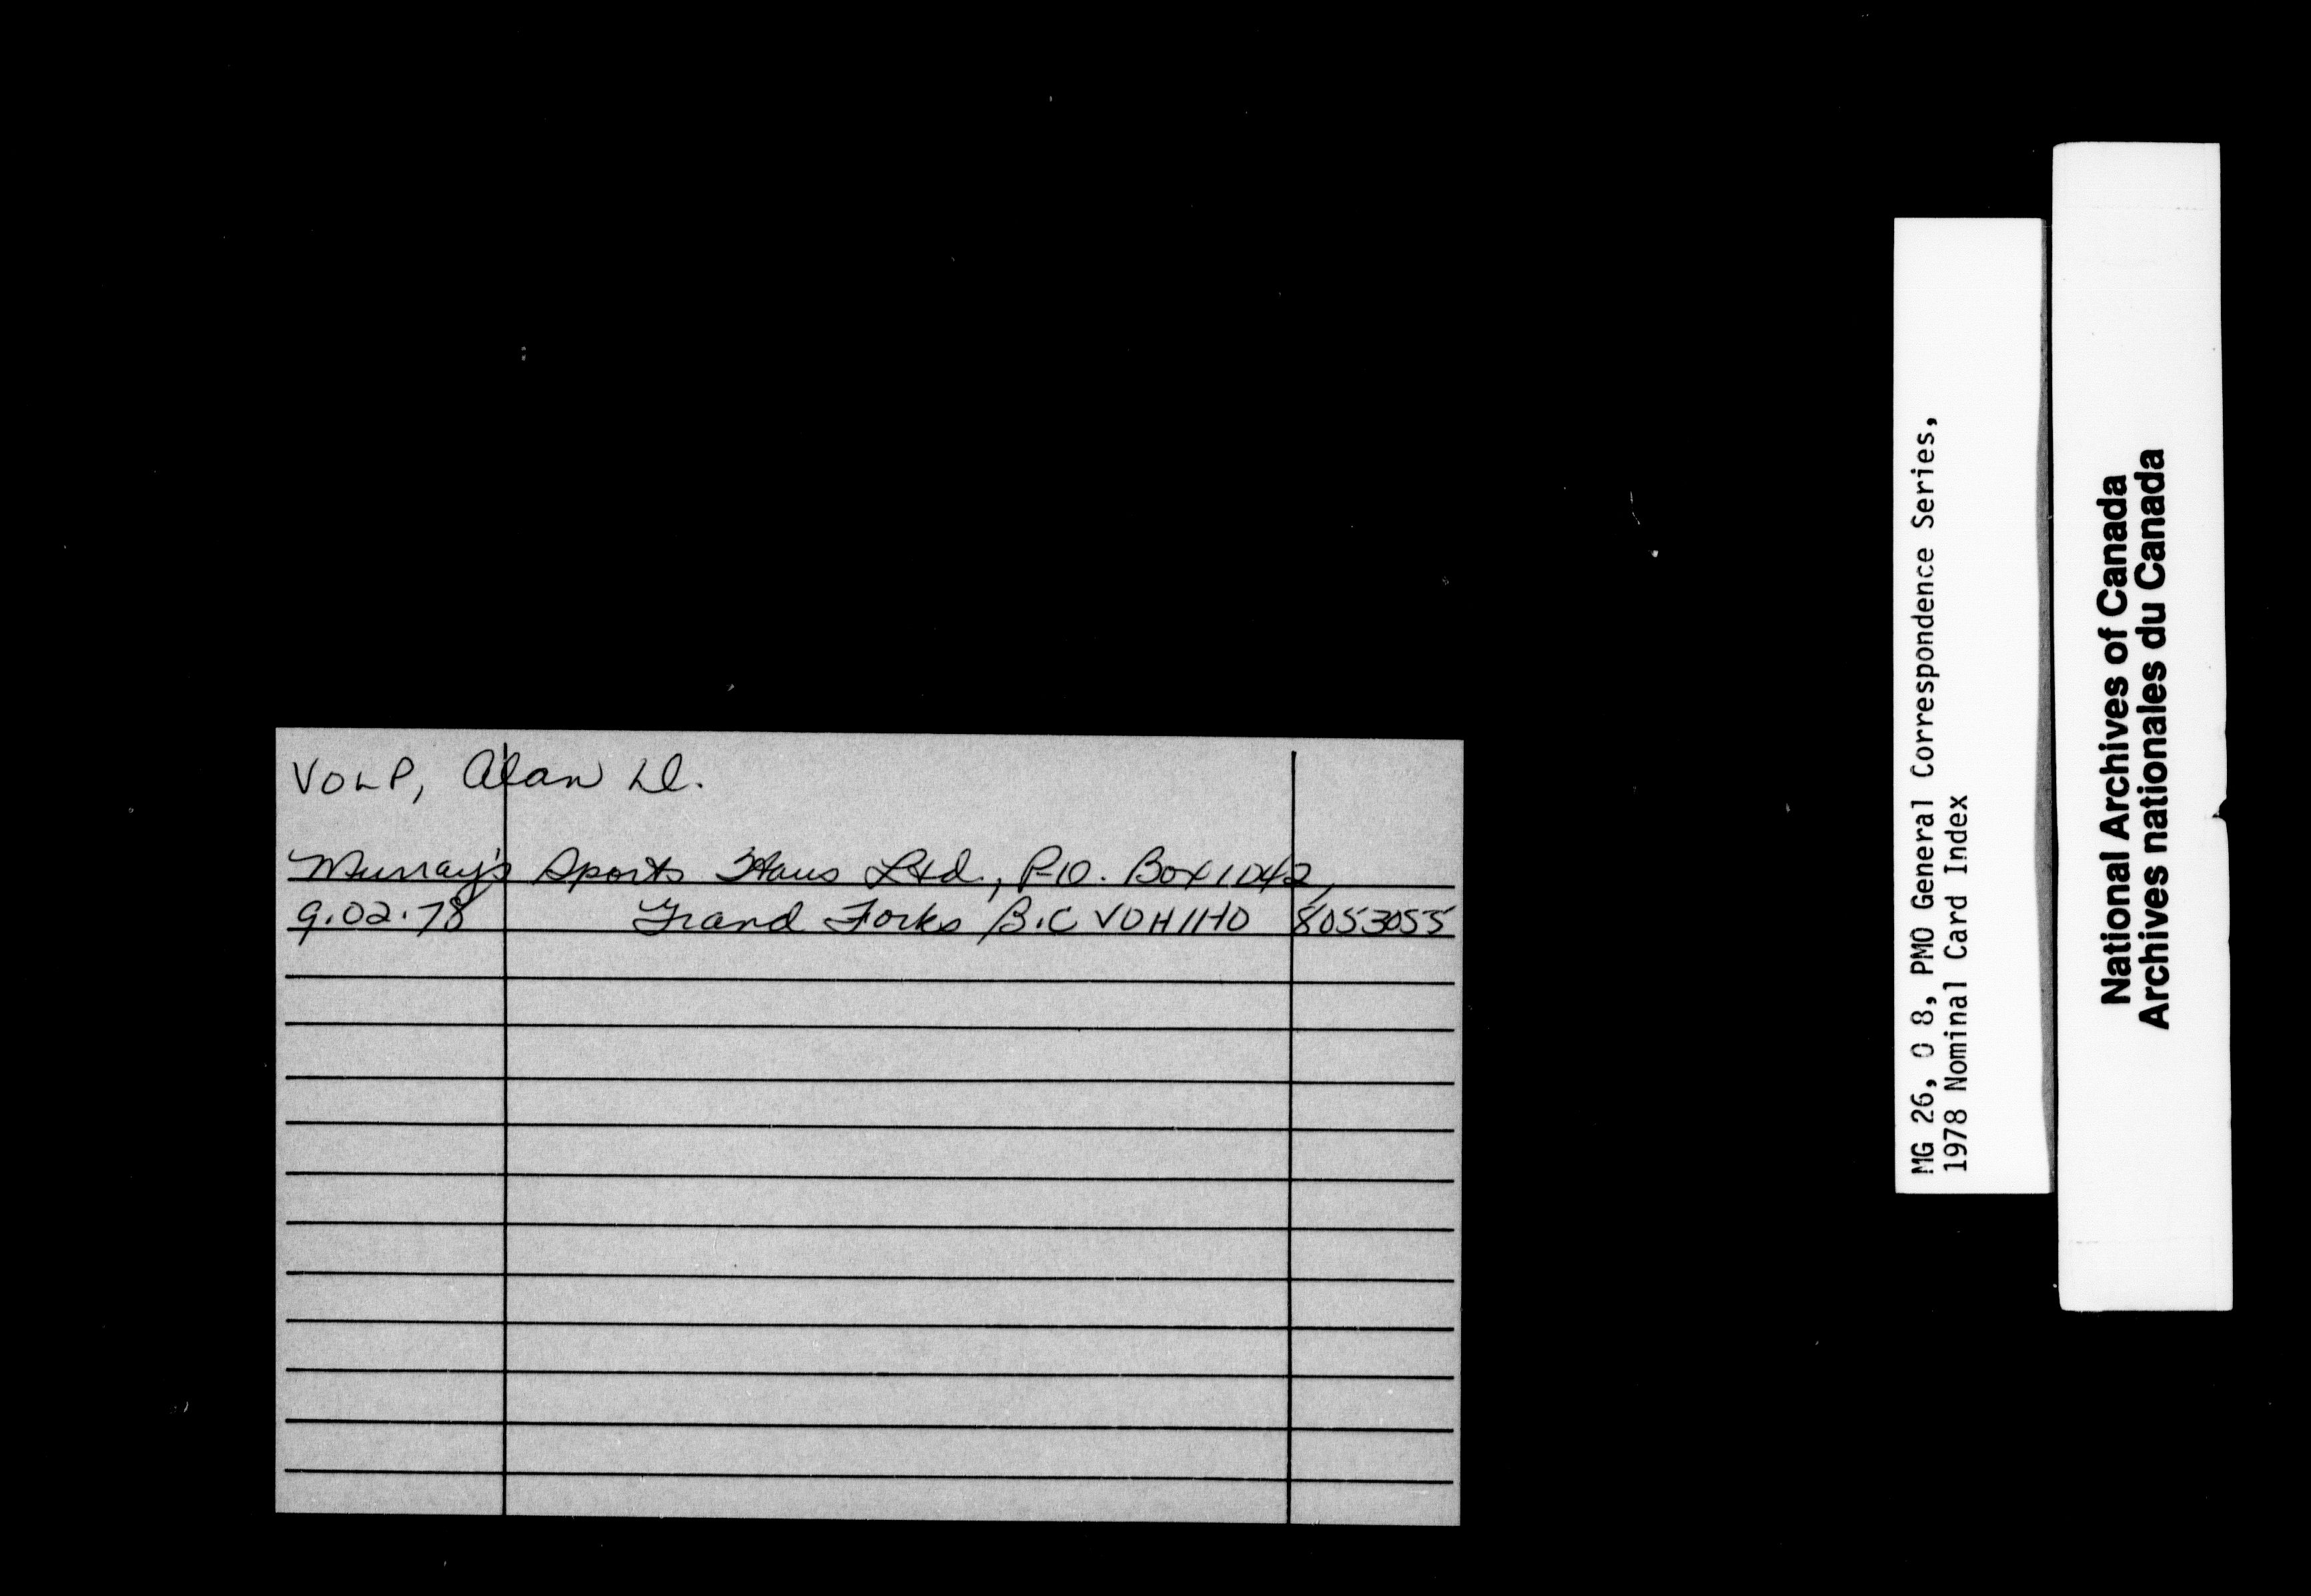 VOLP, Alan D.
Murray's Sports Haus Ltd., P.O. Box 1042,
9.02.78 Grand Forks B.C V0H1H0 8053055
MG 26, O 8, PMO General Correspondence Series,
1978 Nominal Card Index
National Archives of Canada
Archives nationales du Canada